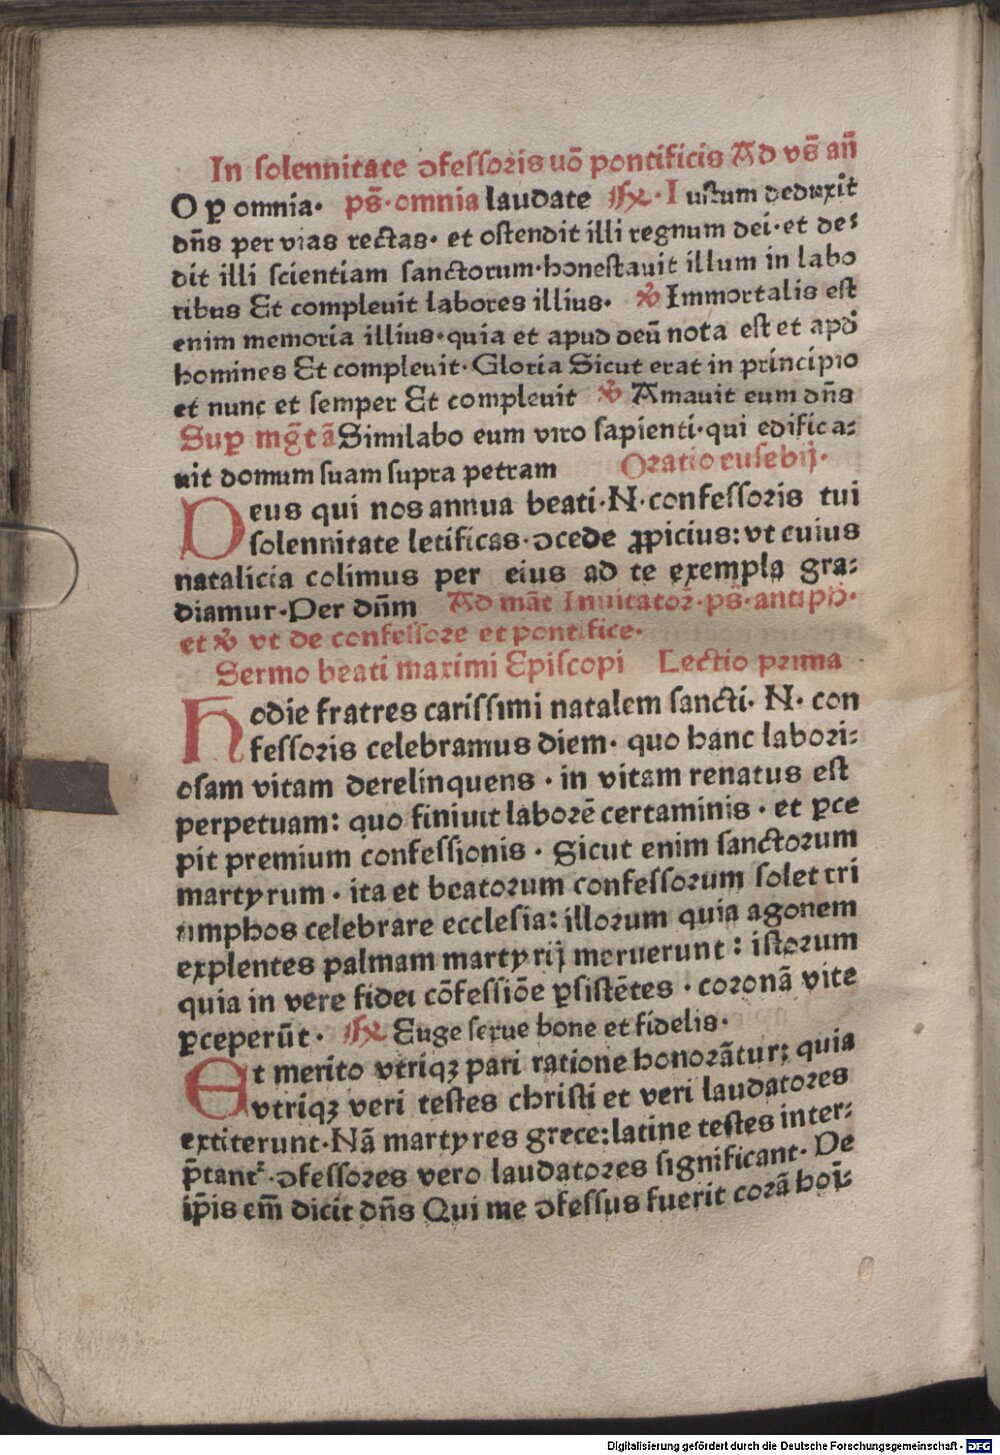 In solennitate ↄfessoris uō pontificis Ad vs̄ an̄
O ꝑ omnia· ps̄·omnia laudate ℟·Iustum deduxit
dn̄s per vias rectas· et ostendit illi regnum dei·et de⸗
dit illi scientiam sanctorum·honestauit illum in labo
ribus Et compleuit labores illius· ℣ Immortalis est
enim memoria illius·quia et apud deū nota est et apd̓
homines Et compleuit·Gloria Sicut erat in principio
et nunc et semper Et compleuit ℣ Amauit eum dn̄s
Suꝑ mg̅tā Similabo eum viro sapienti·qui edifica⸗
uit domum suam supra petram Oratio eusebij·
Deus qui nos annua beati·N·confessoris tui
solennitate letificas·ↄcede ꝓpicius: vt cuius
natalicia colimus per eius ad te exempla gra⸗
diamur·Per dn̄m Ad māt Inuitator̄·ps̄·antiph̄·
et ℣ vt de confessore et pontifice·
Sermo beati maximi Episcopi Lectio prima
Hodie fratres carissimi natalem sancti·N·con
fessoris celebramus diem· quo hanc labori⸗
osam vitam derelinquens·in vitam renatus est
perpetuam: quo finiuit laborē certaminis·et ꝑce
pit premium confessionis·Sicut enim sanctorum
martyrum·ita et beatorum confessorum solet tri
umphos celebrare ecclesia: illorum quia agonem
explentes palmam martyrij meruerunt: istorum
quia in vere fidei cōfessiōe ꝑsistētes·coronā vite
ꝑceperūt· ℟ Euge serue bone et fidelis·
Et merito vtriqꝫ pari ratione honorātur; quia
vtriqꝫ veri testes christi et veri laudatores
extiterunt·Nā martyres grece: latine testes inter⸗
p̄tantᷣ·ↄfessores vero laudatores significant·De
ip̄is em̄ dicit dn̄s Qui me ↄfessus fuerit corā hoī⸗
Digitalisierung gefördert durch die Deutsche Forschungsgemeinschaft - DFG